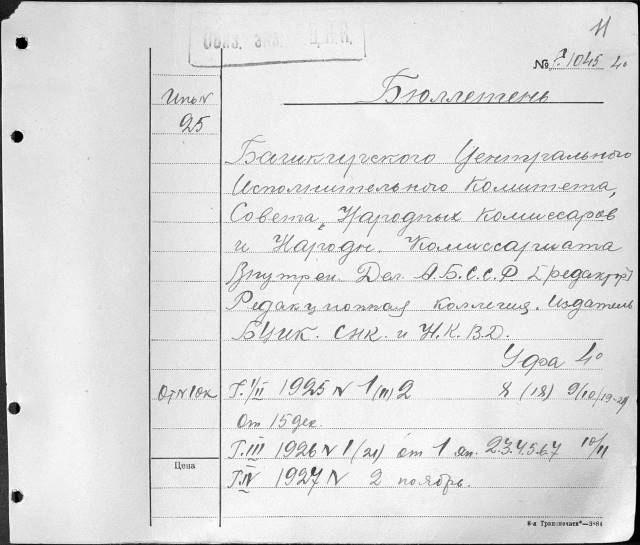 Обяз. экз. Ц.К.К.
11
№ 1045 4°
Бюллетень
25
Башкирского Центрального
Исполнительного Комитета,
Совета Народных Комиссаров
и Народн. Комиссариата
Внутрен. Дел А.Б.С.С.Р. [редактор]
Редакционная коллегия. Издатель
БЦИК. СНК. и Н.К.В.Д.
Уфа 4°
Г. I/II 1925 N 1 (11) 2 8 (18) 9/10/19-20
От 15 дек.
Г. III 1926 N 1 (21) от 1 ян. 2.3.4.5.6.7 10/11
Цена
Г IV 1927 N 2 ноябрь.
6-я Транспечати"—3284